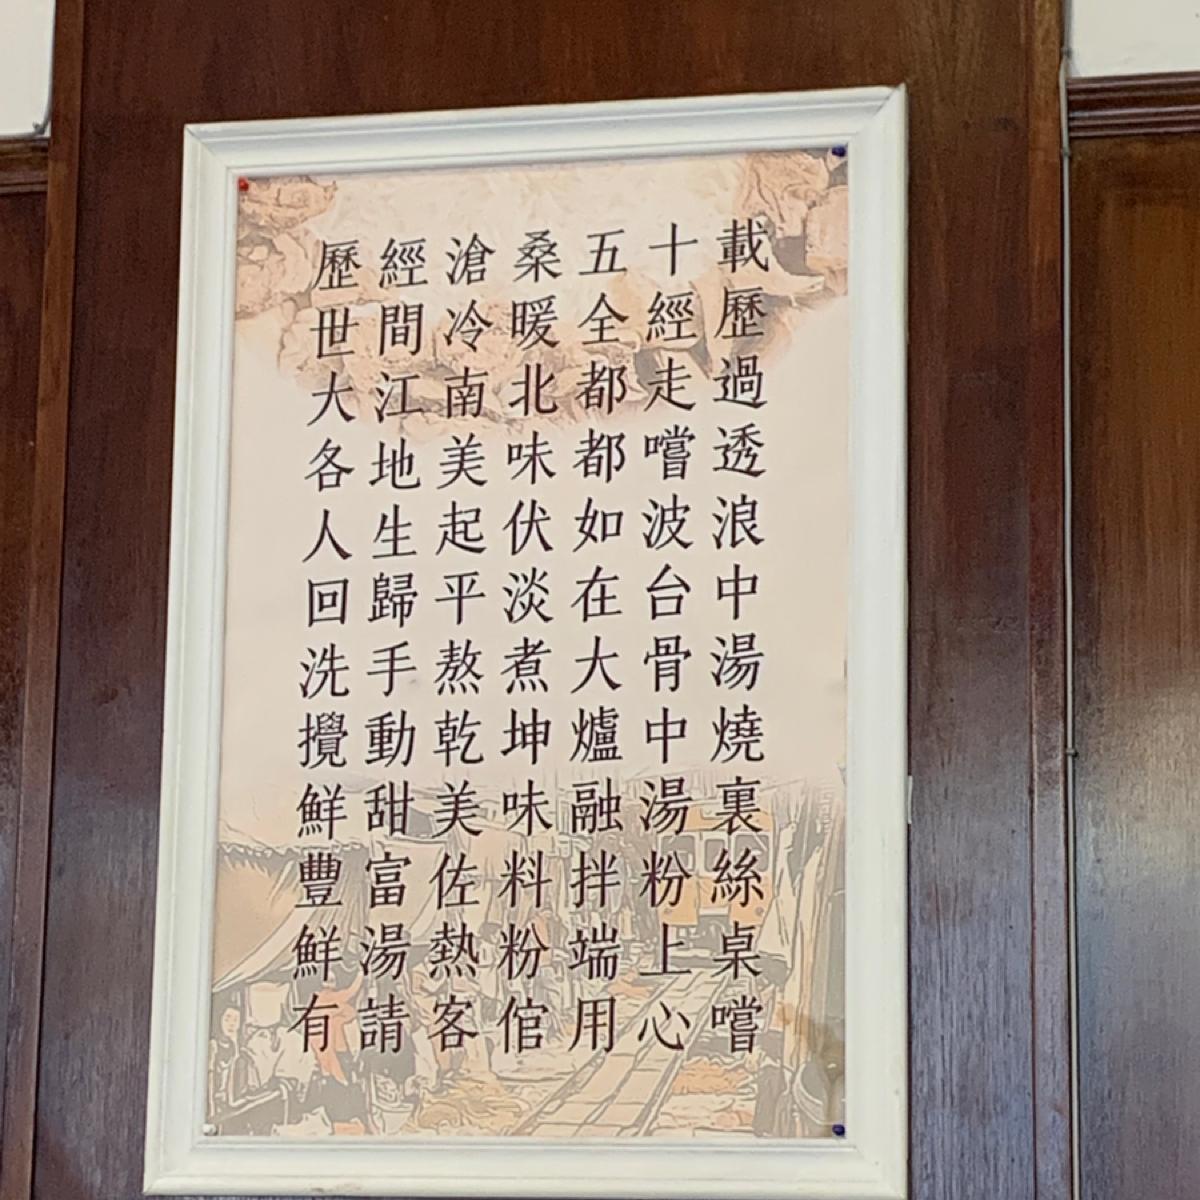 歷經滄桑五十載
世間冷暖全經歷
大江南北都走過
各地美味都嚐透
人生起伏如波浪
回歸平淡在台中
洗手熬煮大骨湯
攪動乾坤爐中燒
鮮甜美味融湯裏
豐富佐料拌粉絲
鮮湯熱粉端上桌
有請客倌用心嚐